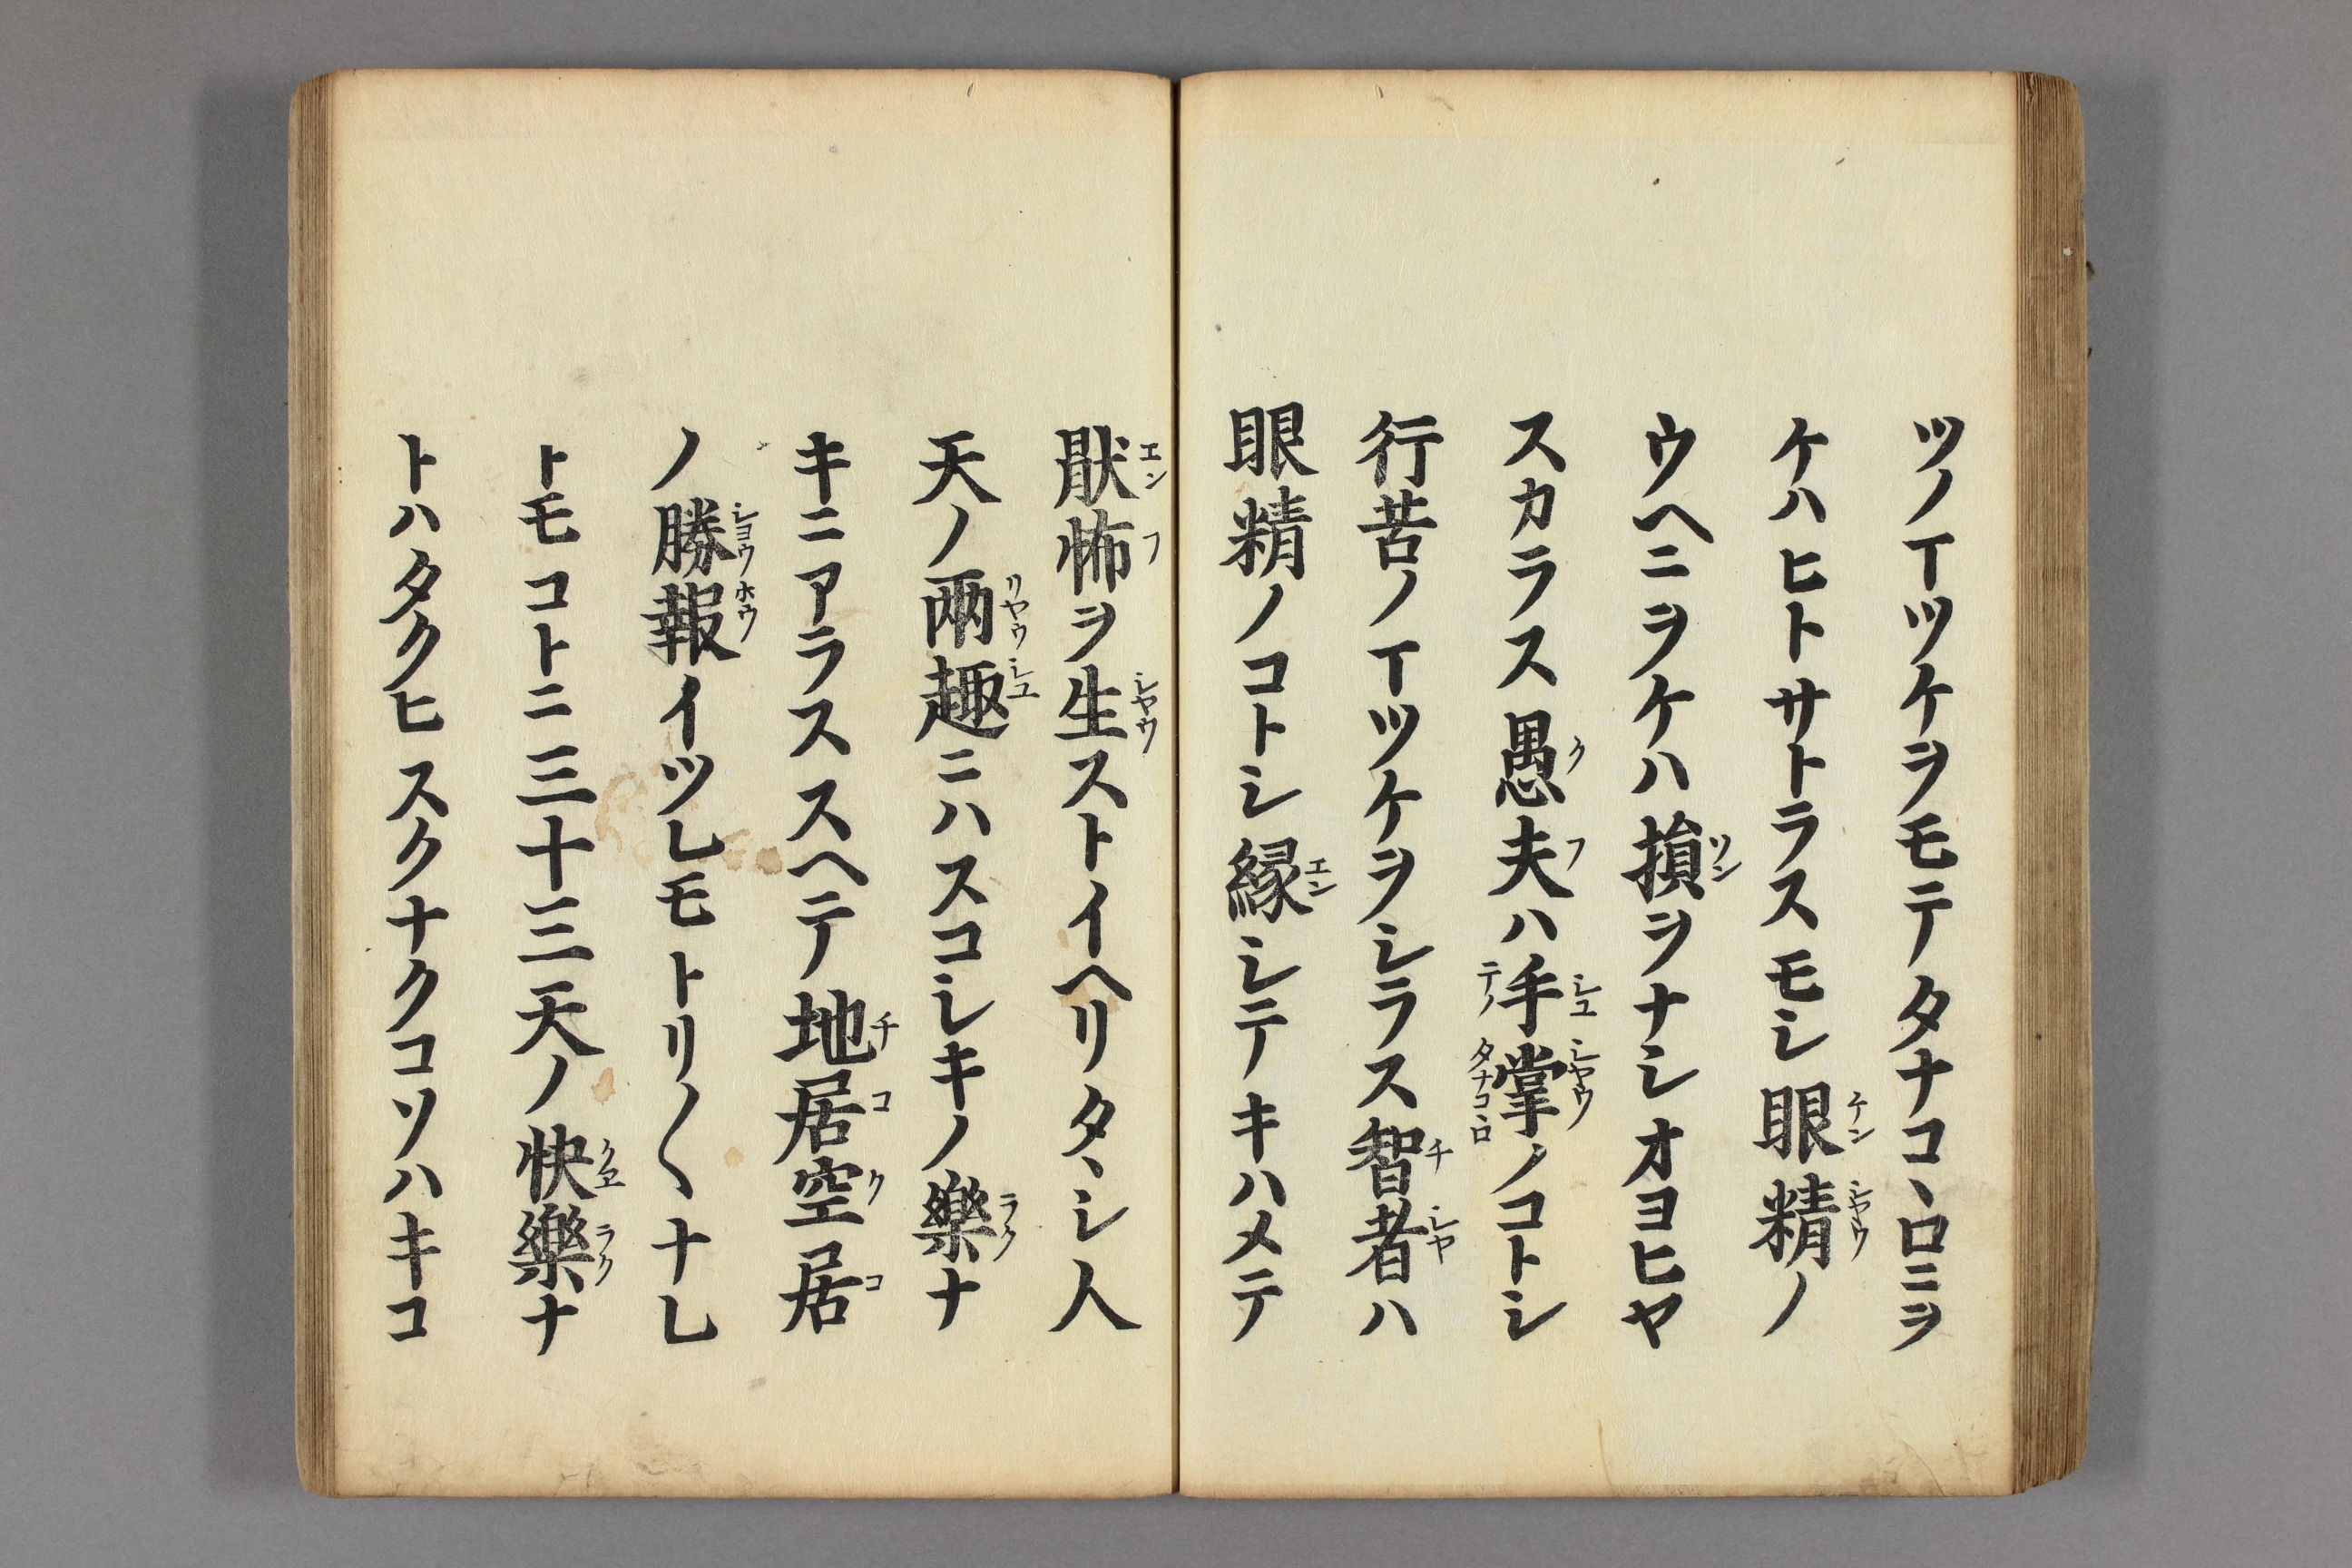 ツノイツケヲモテタナコヽロニヲ
ケハヒトサトラスモシ眼精ノ
ウヘニヲケハ損ヲナシオヨヒヤ
スカラス愚夫ハ手掌ノコトシ
行苦ノイツケヲシラス智者ハ
眼精ノコトシ縁シテキハメテ
猒怖ヲ生ストイヘリタヽシ人
天ノ兩趣ニハスコシキノ樂ナ
キニアラススヘテ地居空居
ノ勝報イツレモトリ〳〵ナレ
トモコトニ三十三天ノ快樂ナ
トハタクヒスクナクコソハキコ